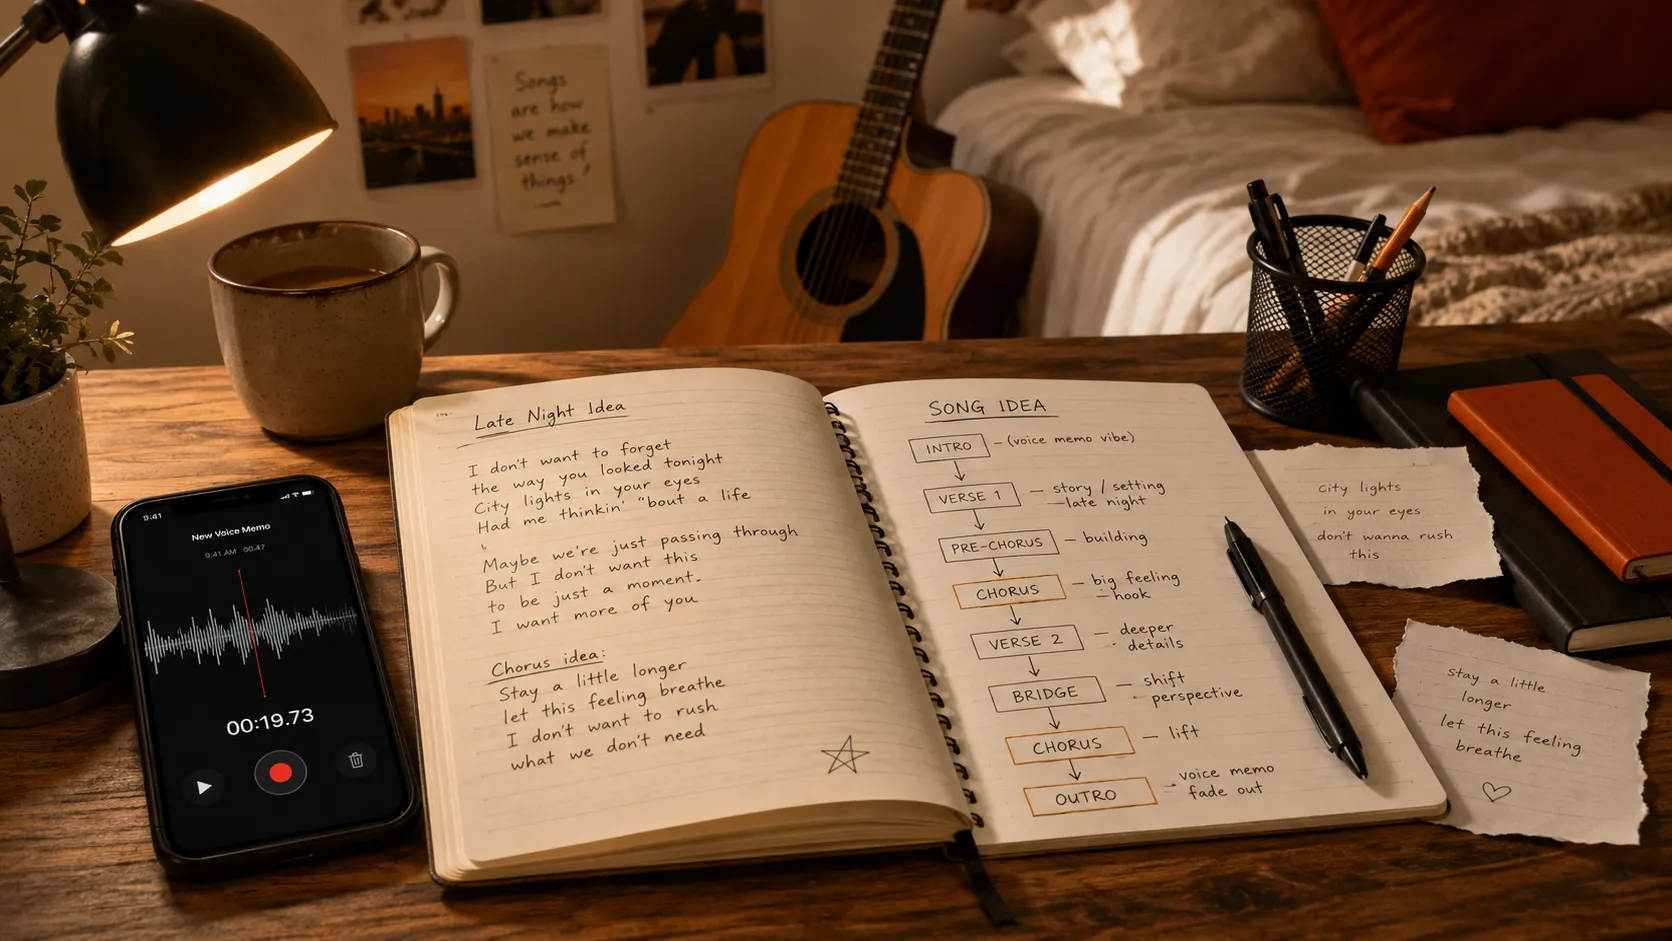 Songs
are how
we make
sense of
things.
9:41
New Voice Memo
9:41 AM 00:47
00:19.73
Late Night Idea
I don't want to forget
the way you looked tonight
City lights in your eyes
Had me thinkin' "bout a life
Maybe we're just passing through
But I don't want this
to be just a moment.
I want more of you
Chorus idea:
Stay a little longer
let this feeling breathe
I don't want to rush
what we don't need
SONG IDEA
INTRO – (voice memo vibe)
VERSE 1 – story / setting
– late night
PRE-CHORUS – building
CHORUS – big feeling
– hook
VERSE 2 – deeper
details
BRIDGE – shift
perspective
CHORUS – lift
OUTRO – voice memo
fade out
city lights
in your eyes
don't wanna rush
this
stay a little
longer
let this feeling
breathe